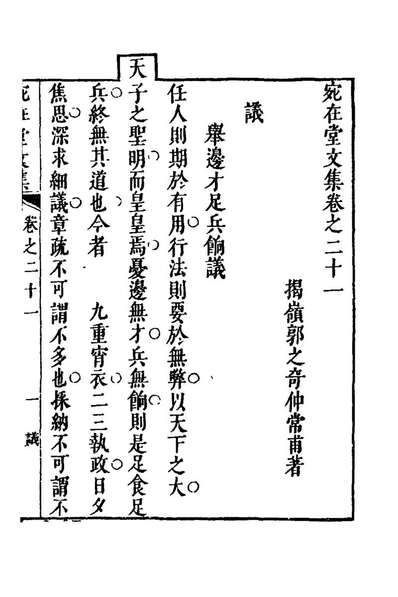 宛在堂文集卷之二十一
揭嶺郭之奇仲常甫著
議
舉邊才足兵餉議
任人則期於有用行法則要於無弊以天下之大
天子之聖明而皇皇焉憂邊無才兵無餉則是足食足
兵終無其道也今者　九重宵衣二三執政日夕
焦思深求細議章疏不可謂不多也採納不可謂不
宛在堂文集　卷之二十一　一　議